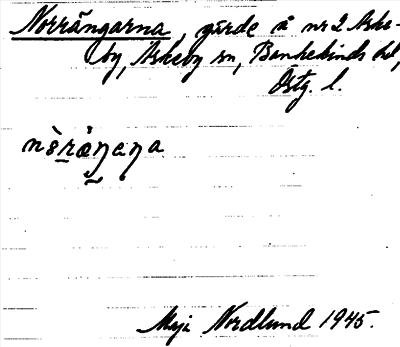 Norrängarna, gärde å nr 2 Aske-
by, Askeby sn, Bankekinds hd,
Östg. l.
Maji Nordlund 1945.